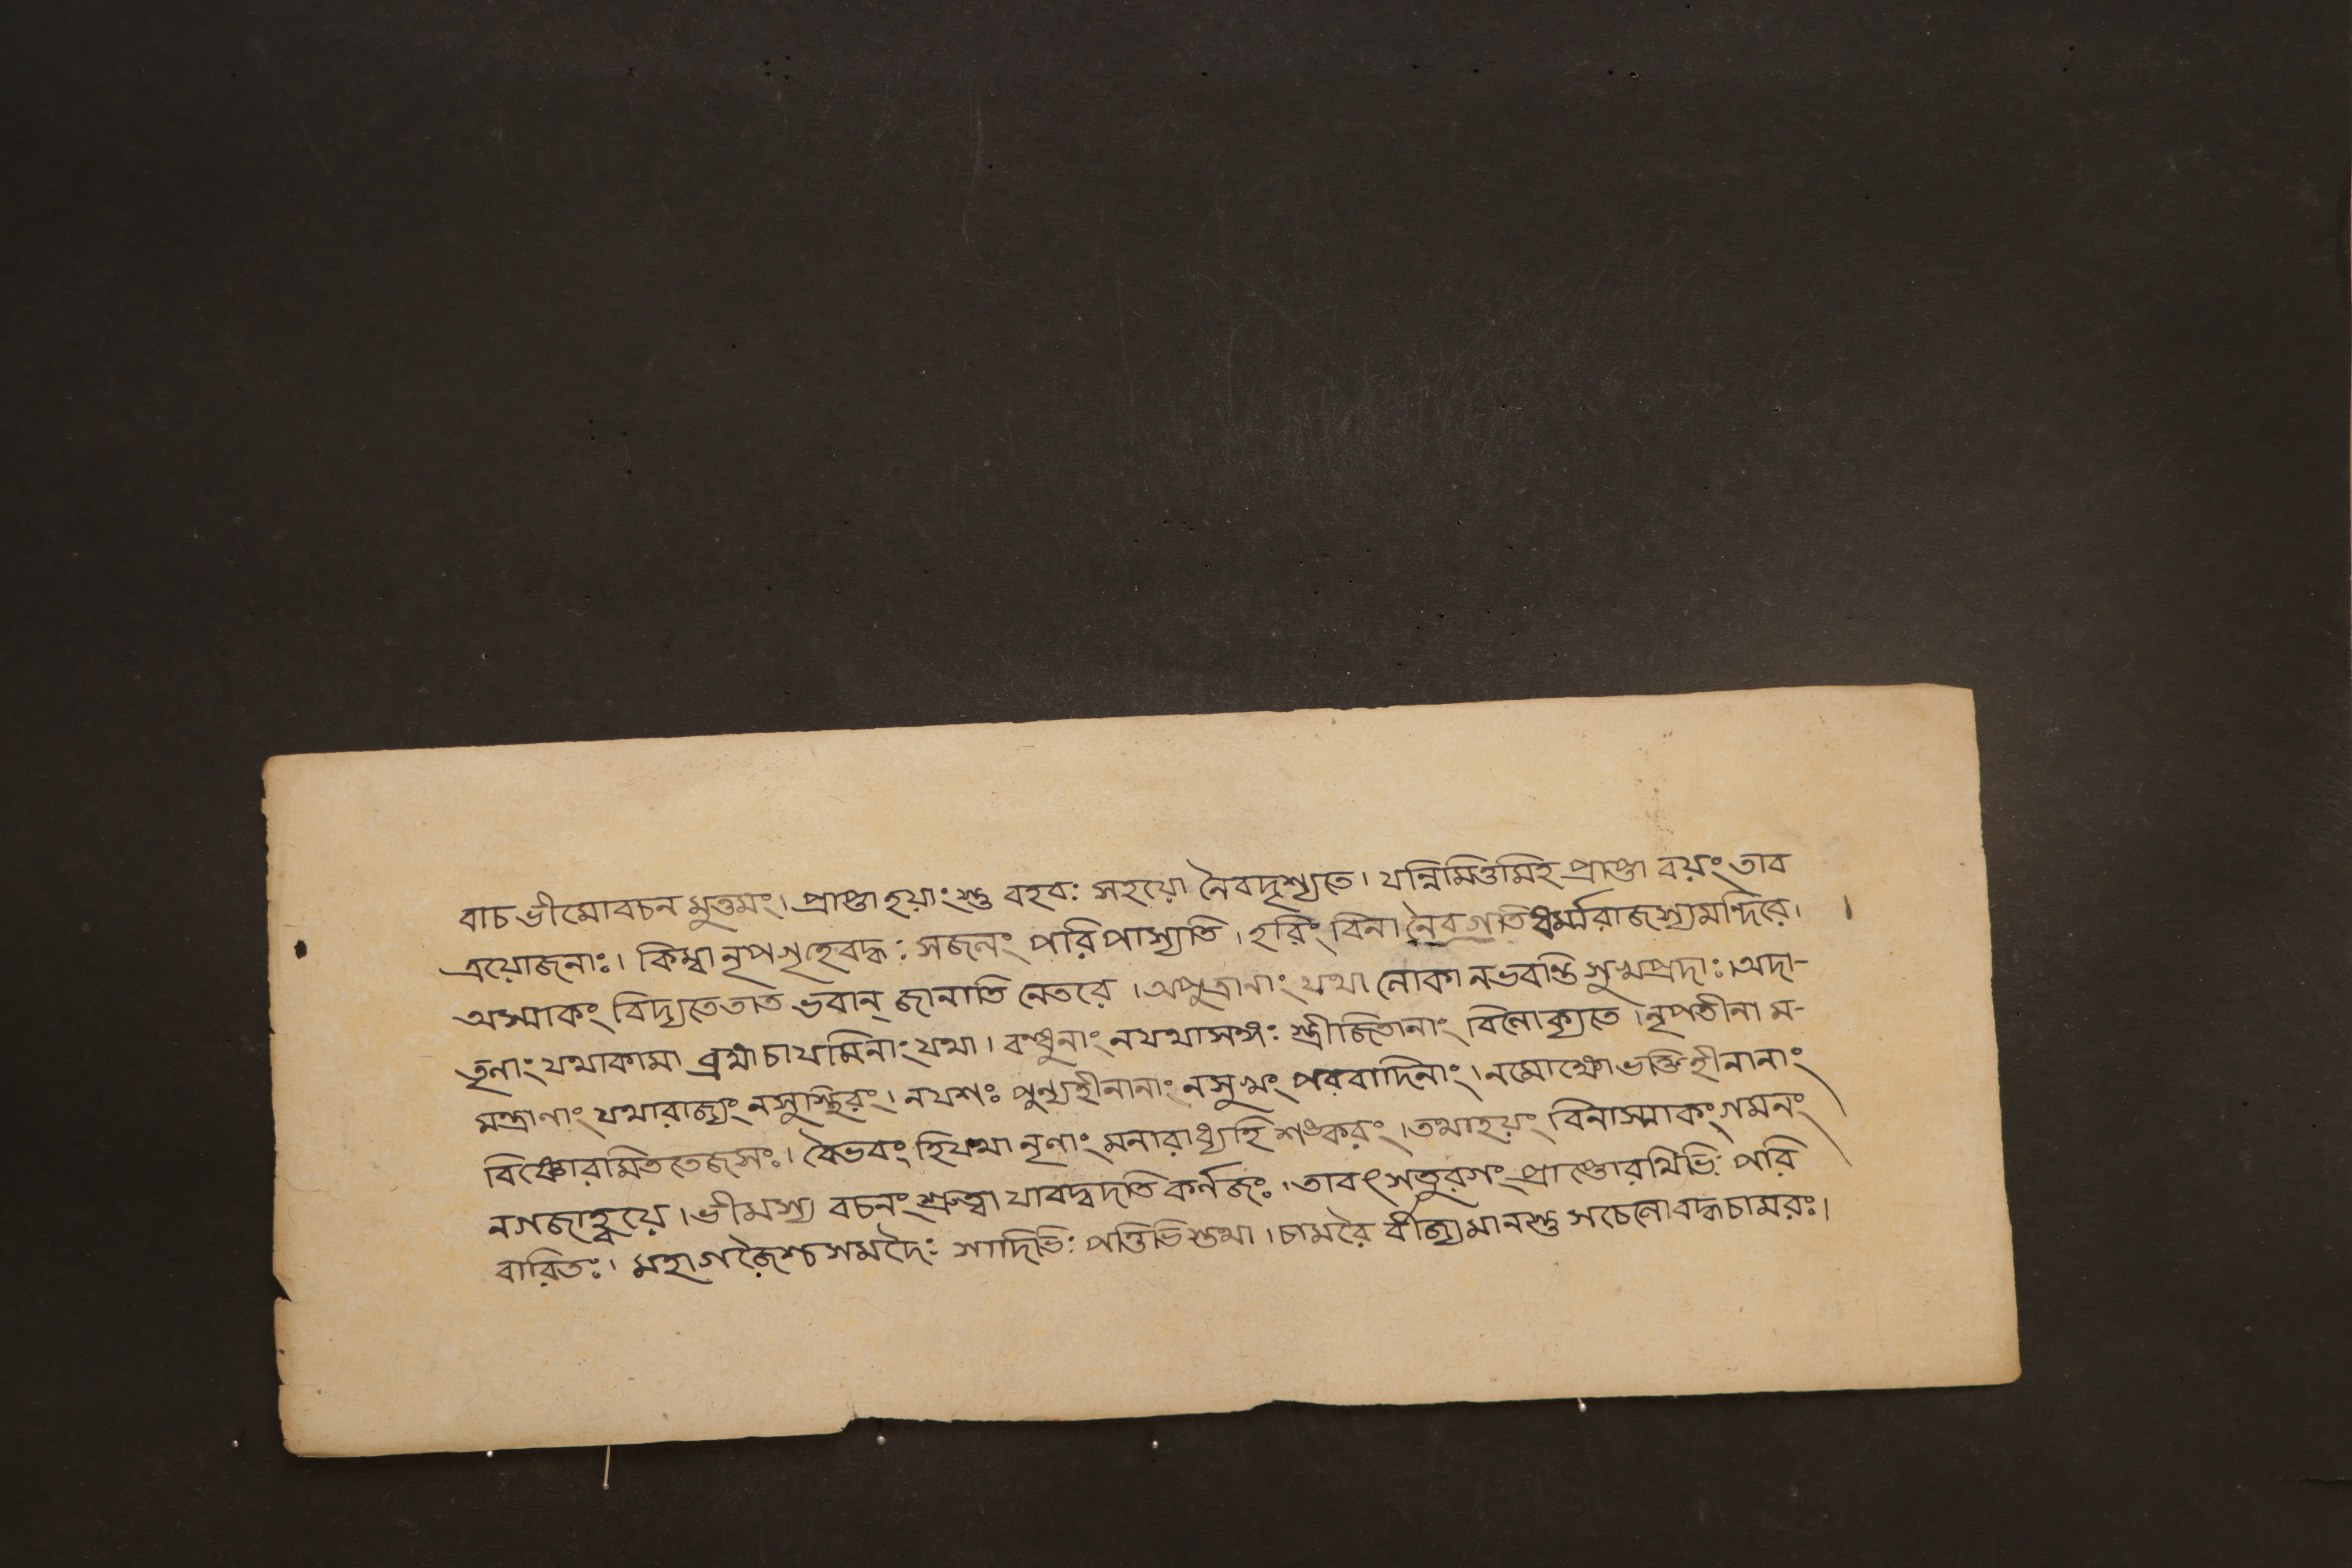 বাচ ভীমোবচন মুত্তমং। প্রাপ্তা হয়াংস্তু বহবঃ সহয়ো নৈবদৃশ্যতে। যন্নিমিত্তমিহ প্রাপ্তা বয়ং তাব
ত্রয়োজনাঃ। কিম্বা নৃপগৃহেবদ্ধঃ সজলং পরি পাস্যতি। হরিং বিনা নৈবগতি ধর্ম্মরাজস্যমন্দিরে।
অস্মাকং বিদ্যতেতাত ভবান্ জানাতি নেতরে। অপুত্রানাং যথা লোকা নভবন্তি সুখপ্রদাঃ। অদা-
তৃনাং যথাকামা ব্রহ্মচাযমিনাং যথা। বন্ধুনাং নযথাসঙ্গঃ স্ত্রীজিতানাং বিলোক্যতে। নৃপতীনা ম-
মন্ত্রাণাং যথারাজ্যং নসুস্থিরং। নযশঃ পুন্যহীনানাং নসুখং পরবাদিনাং। নমোক্ষোভক্তিহীনানাং
বিষ্ণোরমিততেজসঃ। বৈভবং হিযথা নৃণাং মনারাধ্যহি শঙ্করং। তথাহয়ং বিনাস্মাকং গমনং
নগজাহ্বয়ে। ভীমস্য বচনং শ্রুত্বা যাবদ্বদতি কর্নজঃ। তাবৎ সতুরগং প্রাপ্তোরথিভিঃ পরি
বারিতঃ। মহাগজৈশ্চ সমদৈঃ সাদিভিঃ পত্তিভিস্তথা। চামরৈ র্বীজ্যমানস্তু সচেলোবদ্ধচামরঃ।